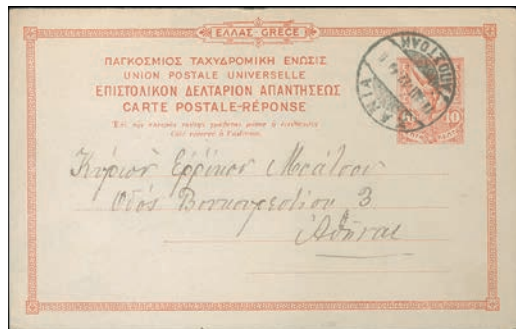 ΕΛΛΑΣ-GRÈCE
ΠΑΓΚΟΣΜΙΟΣ ΤΑΧΥΔΡΟΜΙΚΗ ΕΝΩΣΙΣ
UNION POSTALE UNIVERSELLE
ΕΠΙΣΤΟΛΙΚΟΝ ΔΕΛΤΑΡΙΟΝ ΑΠΑΝΤΗΣΕΩΣ
CARTE POSTALE-RÉPONSE
ΧΑΝΙΑ
10 10
Κύριον Ερρίκον
Οδός Βουκουρεστίου 3
Αθήνας